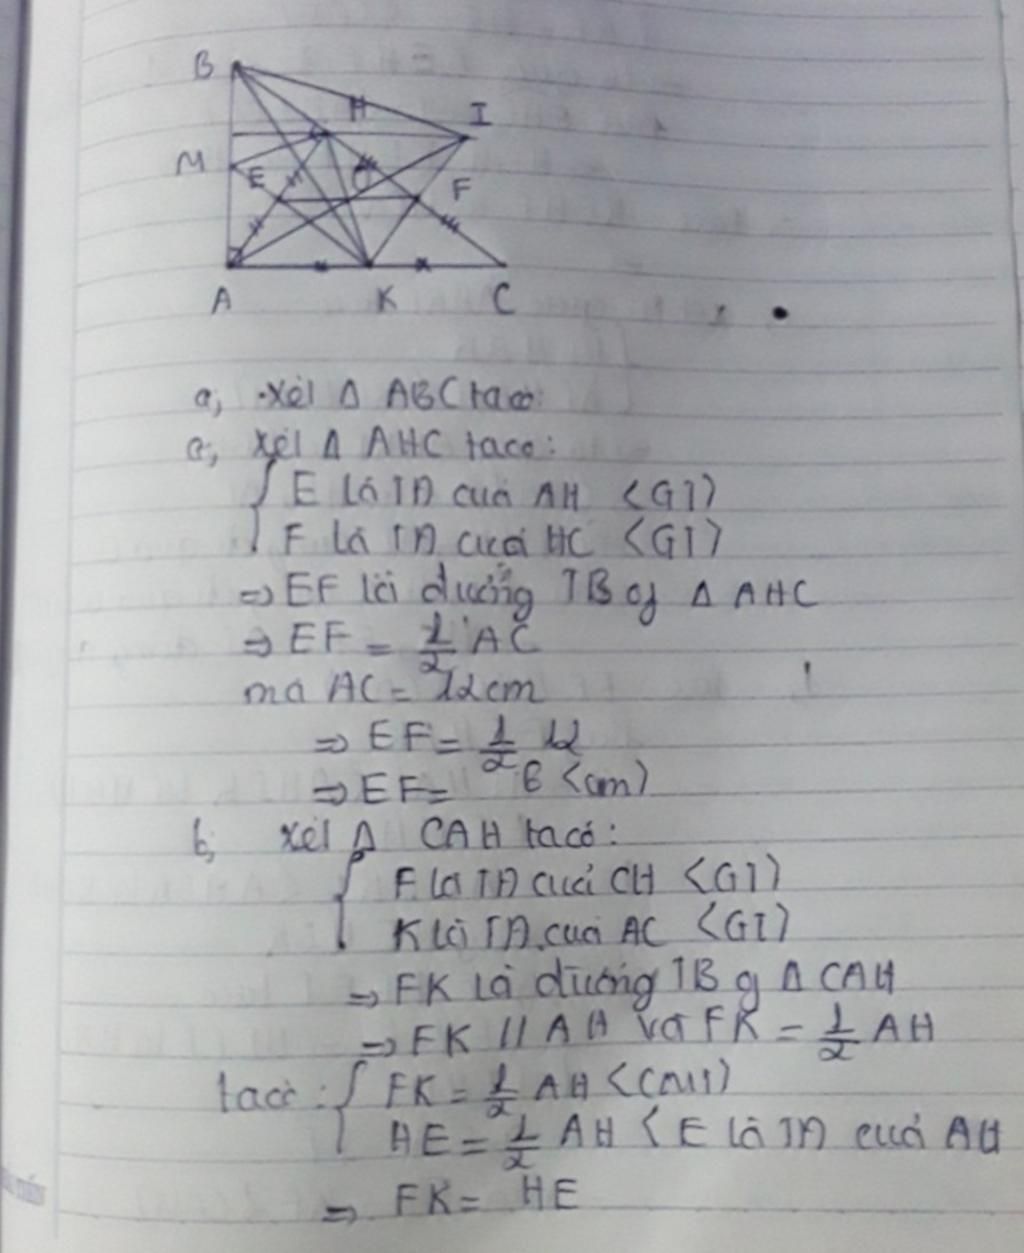 B
H
I
M
E
O
F
A
K
C
a, Xét Δ ABC ta có:
a, Xét Δ AHC ta có:
E là TĐ của AH <GT)
F là TĐ của HC <GT)
=> EF là đường TB of Δ AHC
=> EF = 1/2 AC
mà AC = 12cm
=> EF = 1/2 12
=> EF = 6 <cm)
b, Xét Δ CAH ta có:
F là TĐ của CH <GT)
K là TĐ của AC <GT)
=> FK là đường TB of Δ CAH
=> FK // AH và FK = 1/2 AH
ta có: FK = 1/2 AH <CMT)
HE = 1/2 AH <E là TĐ của AH
=> FK = HE